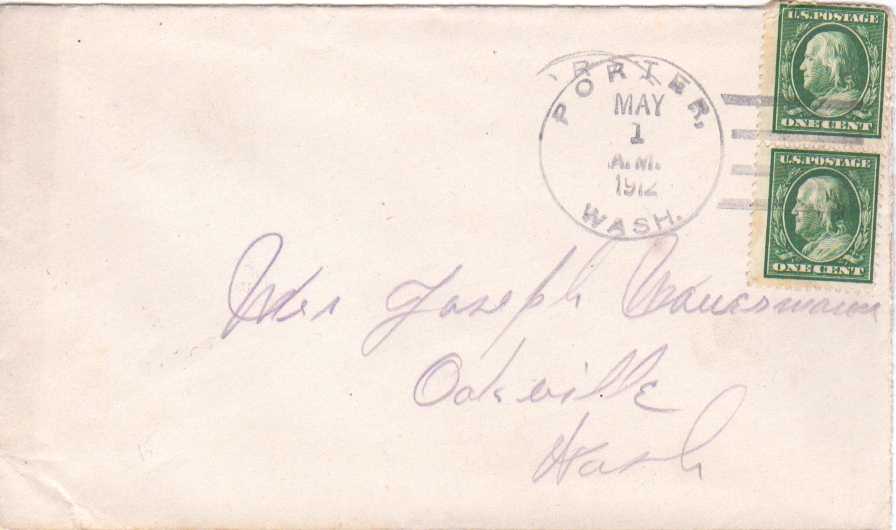 PORTER,
MAY
1
A.M.
1912
WASH.
U.S. POSTAGE
ONE CENT
U.S. POSTAGE
ONE CENT
Mrs Joseph
Oakville
Wash